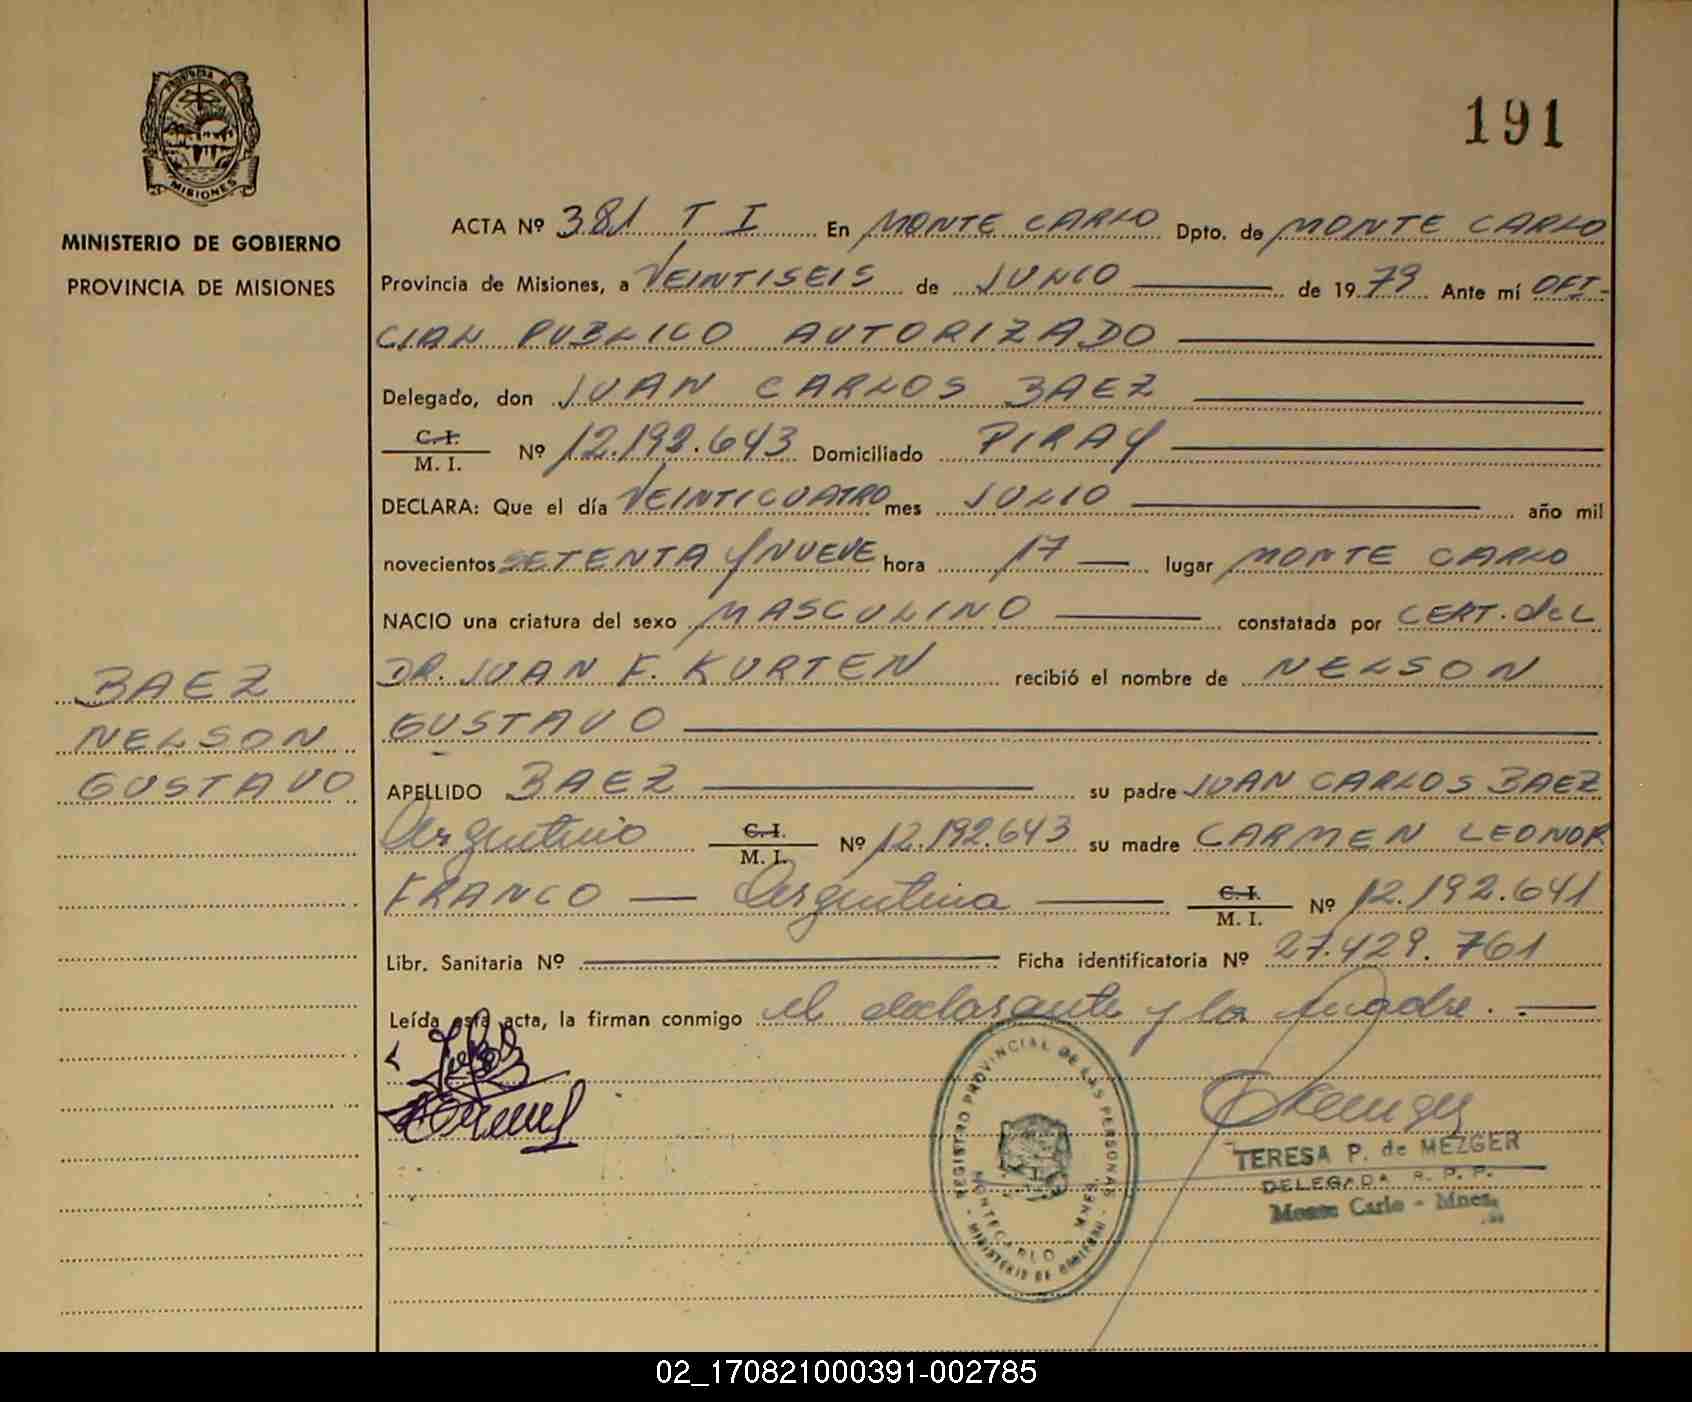 191
PROVINCIA DE
MISIONES
MINISTERIO DE GOBIERNO
PROVINCIA DE MISIONES
BAEZ
NELSON
GUSTAVO
ACTA Nº 381 T I En MONTE CARLO Dpto. de MONTE CARLO
Provincia de Misiones, a VEINTISEIS de JUNIO de 1979 Ante mí OFI-
CIAL PUBLICO AUTORIZADO
Delegado, don JUAN CARLOS BAEZ
C.I. / M. I. Nº 12.192.643 Domiciliado PIRAY
DECLARA: Que el día VEINTICUATRO mes JULIO año mil
novecientos SETENTA y NUEVE hora 17 lugar MONTE CARLO
NACIO una criatura del sexo MASCULINO constatada por CERT. del
DR. JUAN F. KURTEN recibió el nombre de NELSON
GUSTAVO
APELLIDO BAEZ su padre JUAN CARLOS BAEZ
Argentino C.I. / M. I. Nº 12.192.643 su madre CARMEN LEONOR
FRANCO Argentina C.I. / M. I. Nº 12.192.641
Libr. Sanitaria Nº Ficha identificatoria Nº 27.429.761
Leída esta acta, la firman conmigo el declarante y la madre.
REGISTRO PROVINCIAL DE LAS PERSONAS
MONTECARLO - MNES.
- MINISTERIO DE GOBIERNO -
TERESA P. de MEZGER
DELEGADA R. P. P.
Monte Carlo - Mnes.
02_170821000391-002785